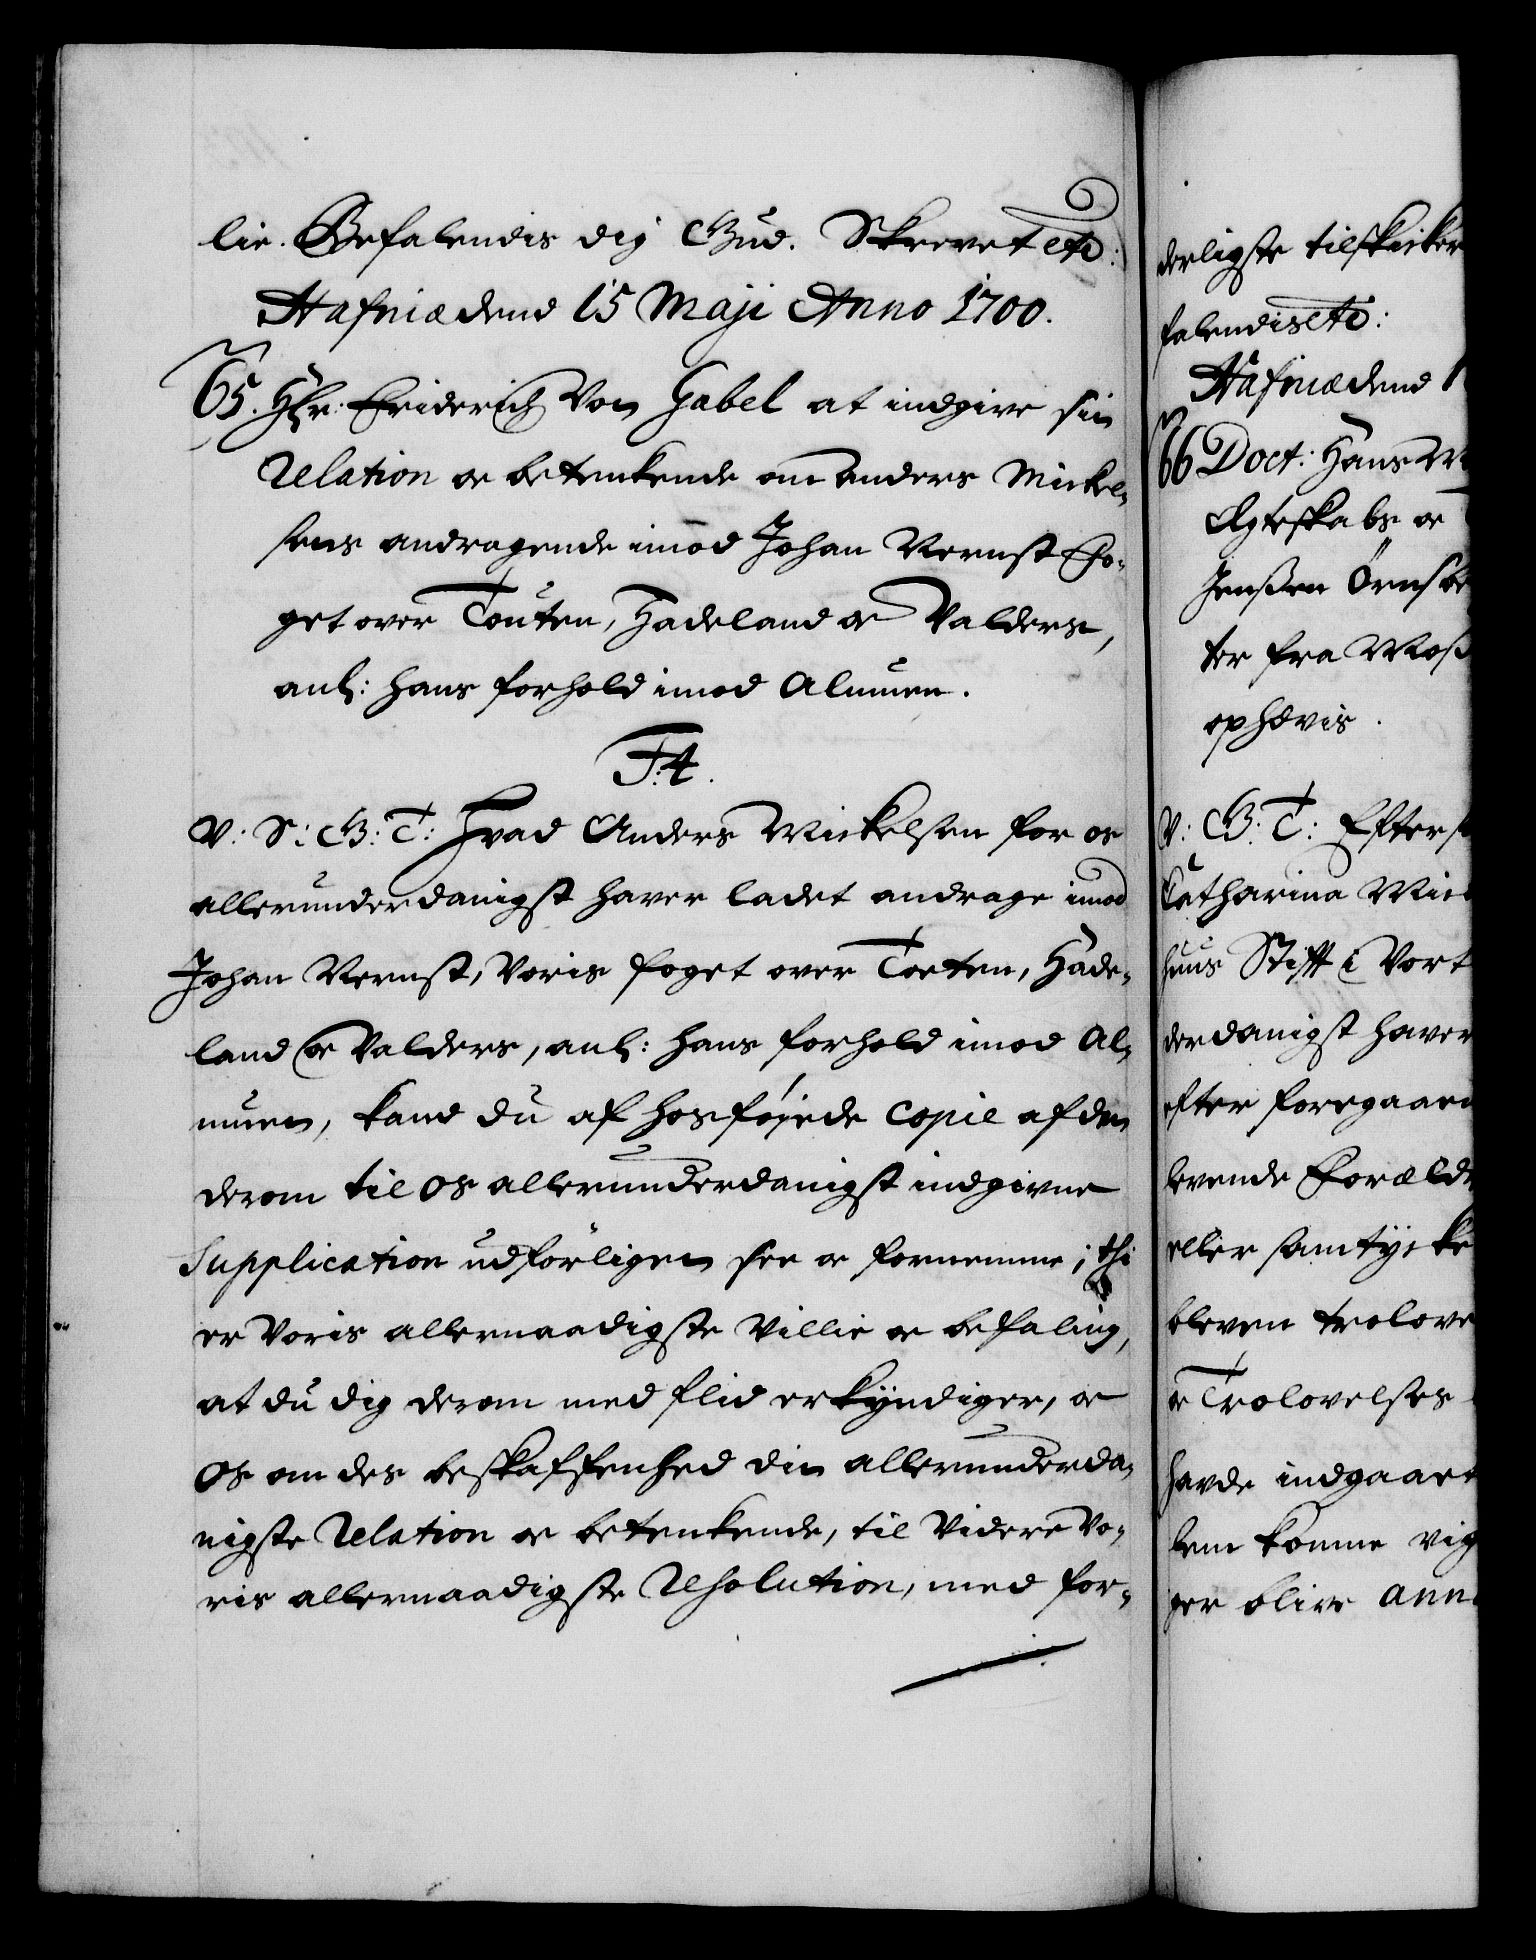 lie. Befalendis dig Gud. Skrevet etc:
Hafniæ dend 15 Maji Anno 1700.
65. Hr: Friderich Von Gabel at indgive sin
Relation oc betenkende om Anders Mickel-
sens andragende imod Johan Wernst Fo-
get over Touten, Hadeland oc Valders,
anl: hans forhold imod Almuen.
F:4.
V: S: G: T: Hvad Anders Mickelsen for os
allerunderdanigst haver ladet andrage imod
Johan Wernst, Voris foget over Toeten, Hade-
land oc Valders, anl: hans forhold imod Al-
muen, kand du af hosføjede Copie af den
derom til os allerunderdanigst indgivne
Supplication udförligen see oc fornemme; thi
er Voris allernaadigste Villie oc befaling,
at du dig derom med flid erkyndiger, oc
Os om des beskaffenhed din allerunderda-
nigste Relation oc betenkende, til Videre Vo-
ris allernaadigste Resolution, med for-
derligste tilskicker
falendis etc:
Hafniæ dend 1
66 Doct: Hans M
Ægteskabs oc
Jenssen Örnsbe
ter fra Moss
ophævis.
V: G: T: Efters
Catharina Mic
huus Stift i Vort
derdanigst haver
efter foregaaen
levende Forældr
eller samtycke
bleven trolove
oc Trolovelses
havde indgaaen
lem komme vig
ger blive ann